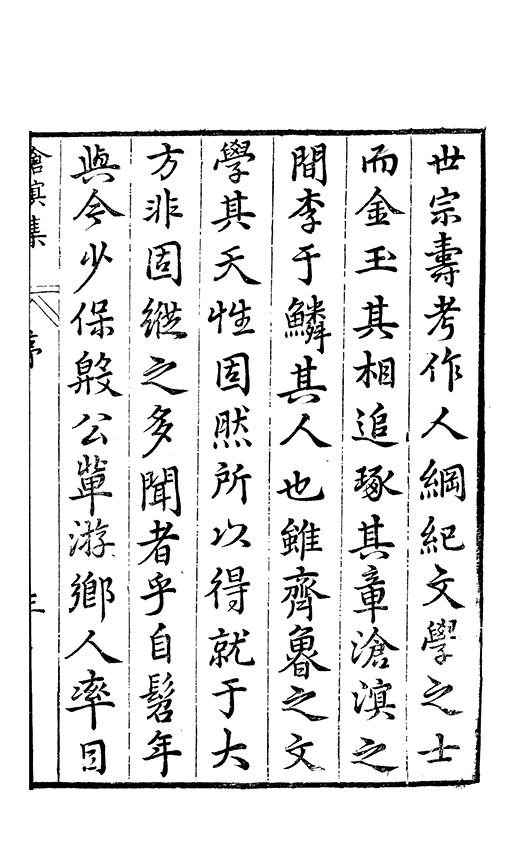 世宗壽考作人綱紀文學之士
而金玉其相追琢其章滄溟之
間李于鱗其人也雖齊魯之文
學其天性固然所以得就于大
方非固縱之多聞者乎自髫年
與今少保殷公輩游鄉人率目
滄溟集 序 三